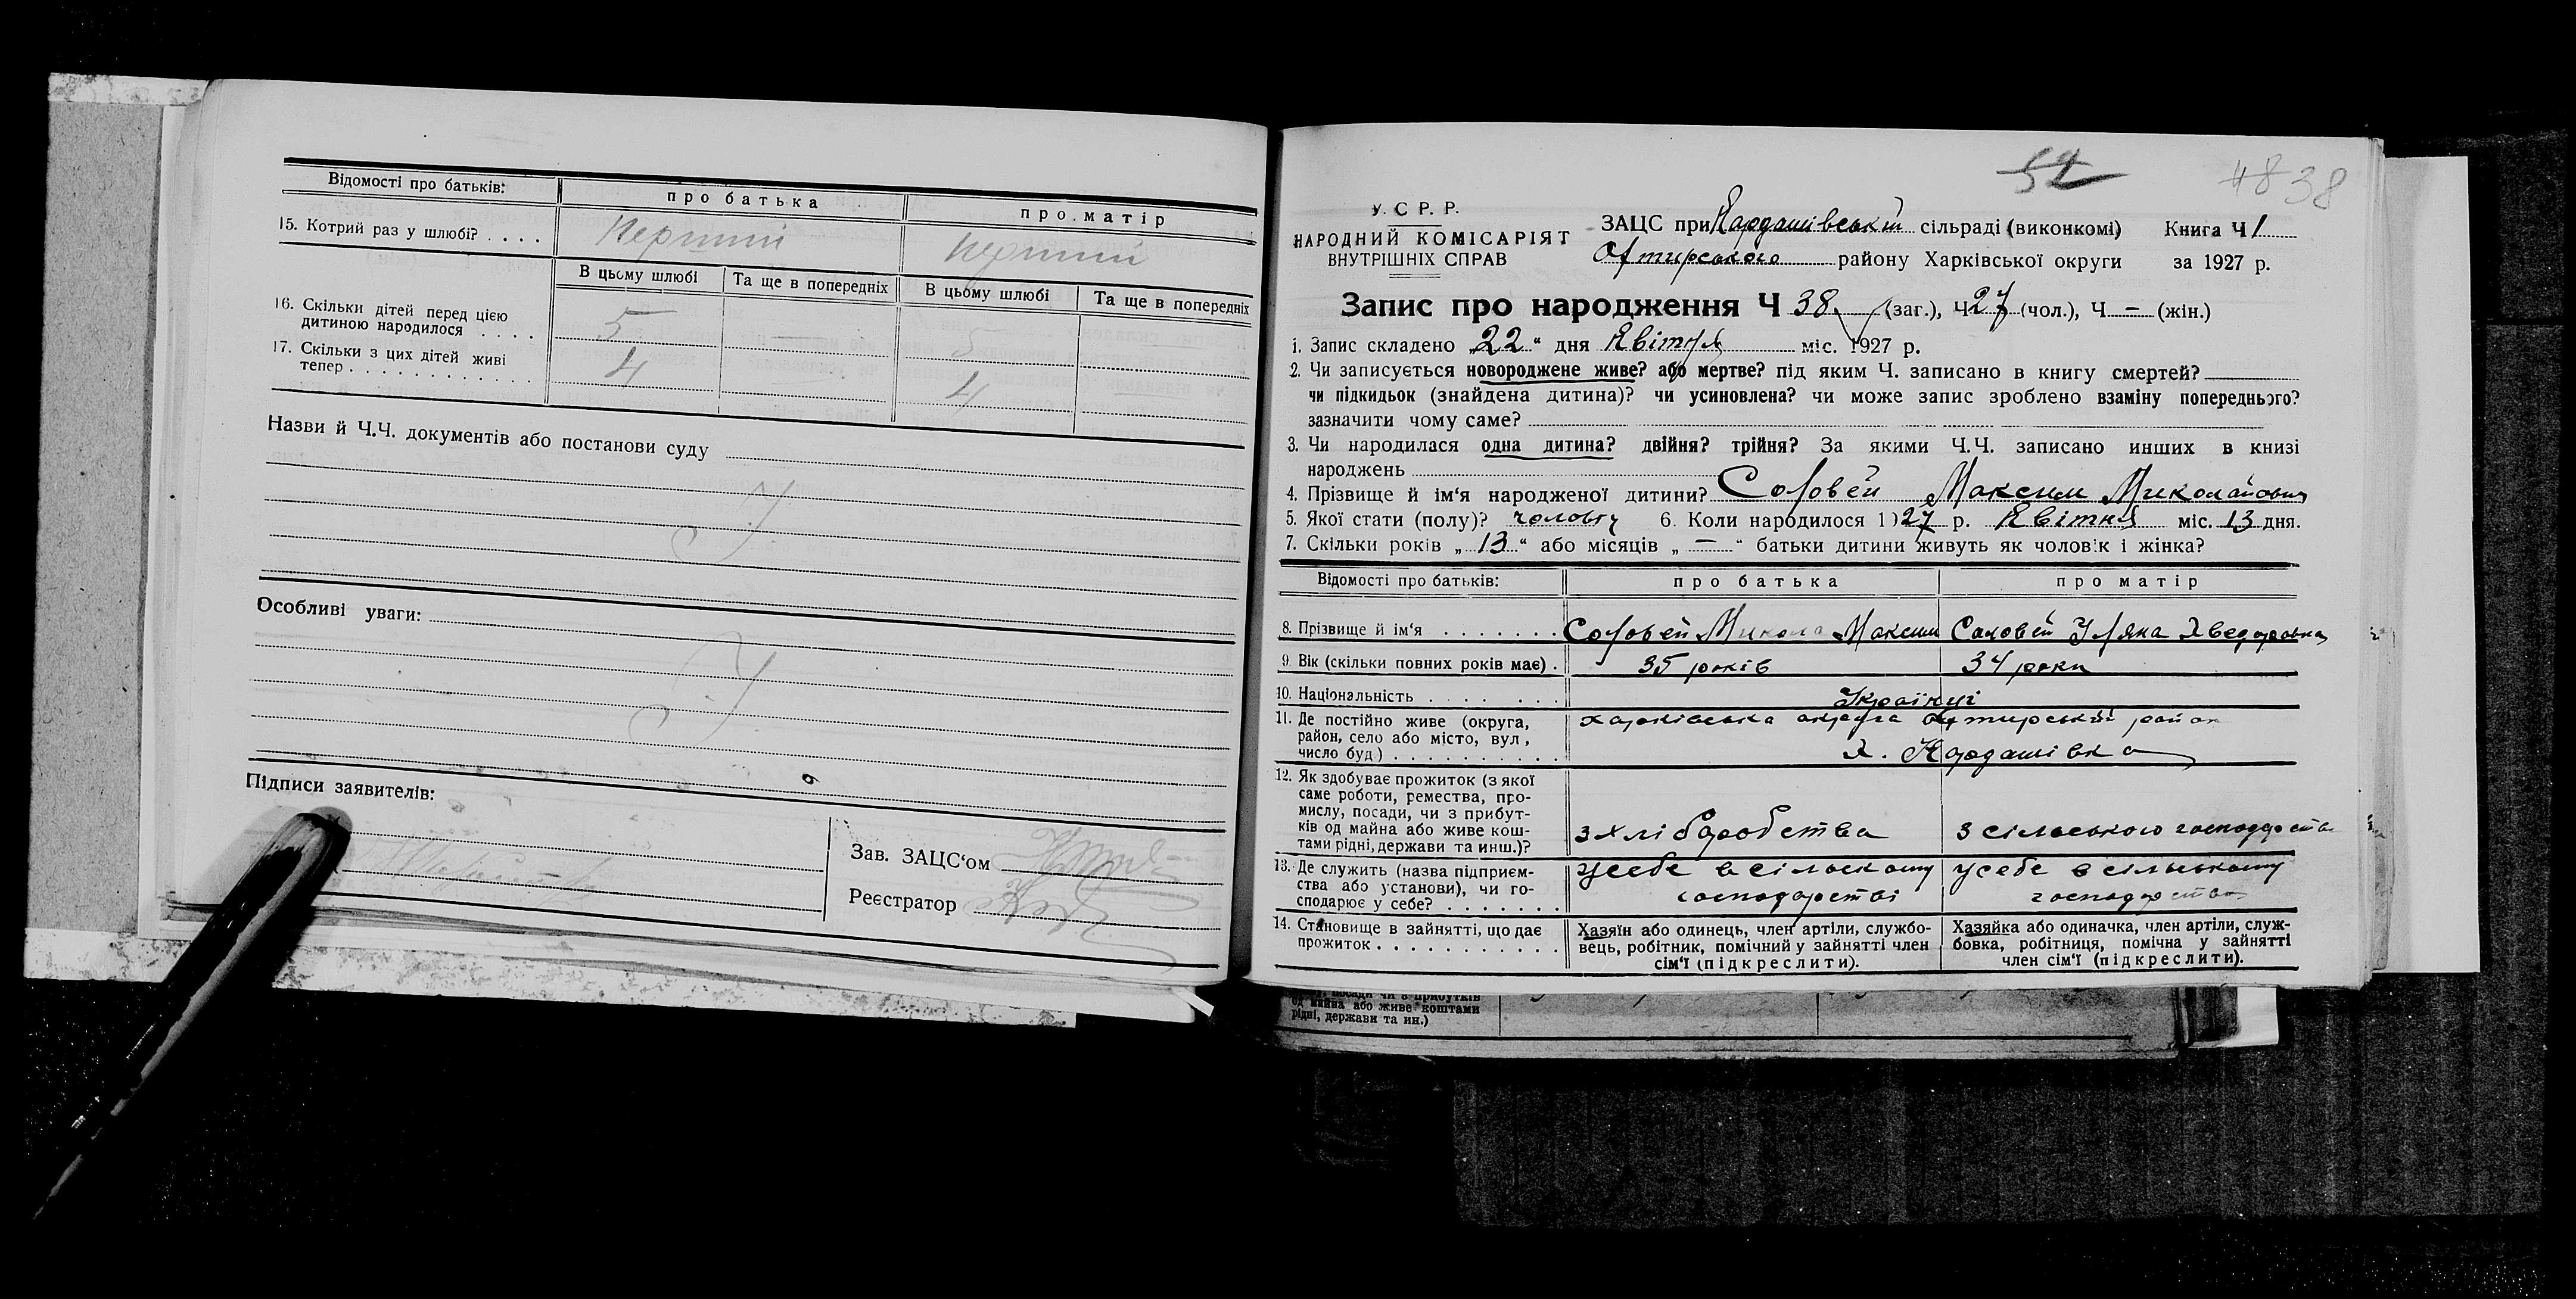 Відомості про батьків:
про батька
про матір
15. Котрий раз у шлюбі? . . . .
Перший
Перший
В цьому шлюбі
Та ще в попередніх
В цьому шлюбі
Та ще в попередніх
16. Скільки дітей перед цією
дитиною народилося . . . .
5
—
5
17. Скільки з цих дітей живі
тепер . . . . . . . . . . . . .
4
4
Назви й Ч.Ч. документів або постанови суду
Особливі уваги:
Підписи заявителів:
Зав. ЗАЦС‘ом
Реєстратор
52
48 38
У. С Р. Р.
НАРОДНИЙ КОМІСАРІЯТ
ВНУТРІШНІХ СПРАВ
ЗАЦС при Кардашівській сільраді (виконкомі) Книга Ч 1
Охтирського району Харківської округи за 1927 р.
Запис про народження Ч 38 (заг.), Ч 27 (чол.), Ч — (жін.)
1. Запис складено „22“ дня Квітня міс. 1927 р.
2. Чи записується новороджене живе? або мертве? під яким Ч. записано в книгу смертей?
чи підкидьок (знайдена дитина)? чи усиновлена? чи може запис зроблено взаміну попереднього?
зазначити чому саме?
3. Чи народилася одна дитина? двійня? трійня? За якими Ч.Ч. записано инших в книзі
народжень
4. Прізвище й ім‘я народженої дитини? Соловей Максим Миколайович
5. Якої стати (полу)? чолов. 6. Коли народилося 1927 р. Квітня міс. 13 дня.
7. Скільки років „13“ або місяців „—“ батьки дитини живуть як чоловік і жінка?
Відомості про батьків:
про батька
про матір
8. Прізвище й ім‘я . . . . . . .
Соловей Микола Максим
Соловей Уляна Хведоровна
9. Вік (скільки повних років має) .
35 років
34 роки
10. Національність . . . . . . .
Українці
11. Де постійно живе (округа,
район, село або місто, вул,
число буд) . . . . . . . . . .
Харківська округа Охтирський район
х. Кардашівка
12. Як здобуває прожиток (з якої
саме роботи, ремества, про-
мислу, посади, чи з прибут-
ків од майна або живе кош-
тами рідні, держави та инш.)?
з хліборобства
з сільського господарства
13. Де служить (назва підприєм-
ства або установи), чи го-
сподарює у себе? . . . . . . .
у себе в сільскому
господарстві
у себе в сільскому
господарстві
14. Становище в зайнятті, що дає
прожиток . . . . . . . . . .
Хазяїн або одинець, член артіли, службо-
вець, робітник, помічний у зайнятті член
сім‘ї (підкреслити).
Хазяйка або одиначка, член артіли, служ-
бовка, робітниця, помічна у зайнятті
член сім‘ї (підкреслити).
посади чи з прибутків
од майна або живе коштами
рідні, держави та ин.)